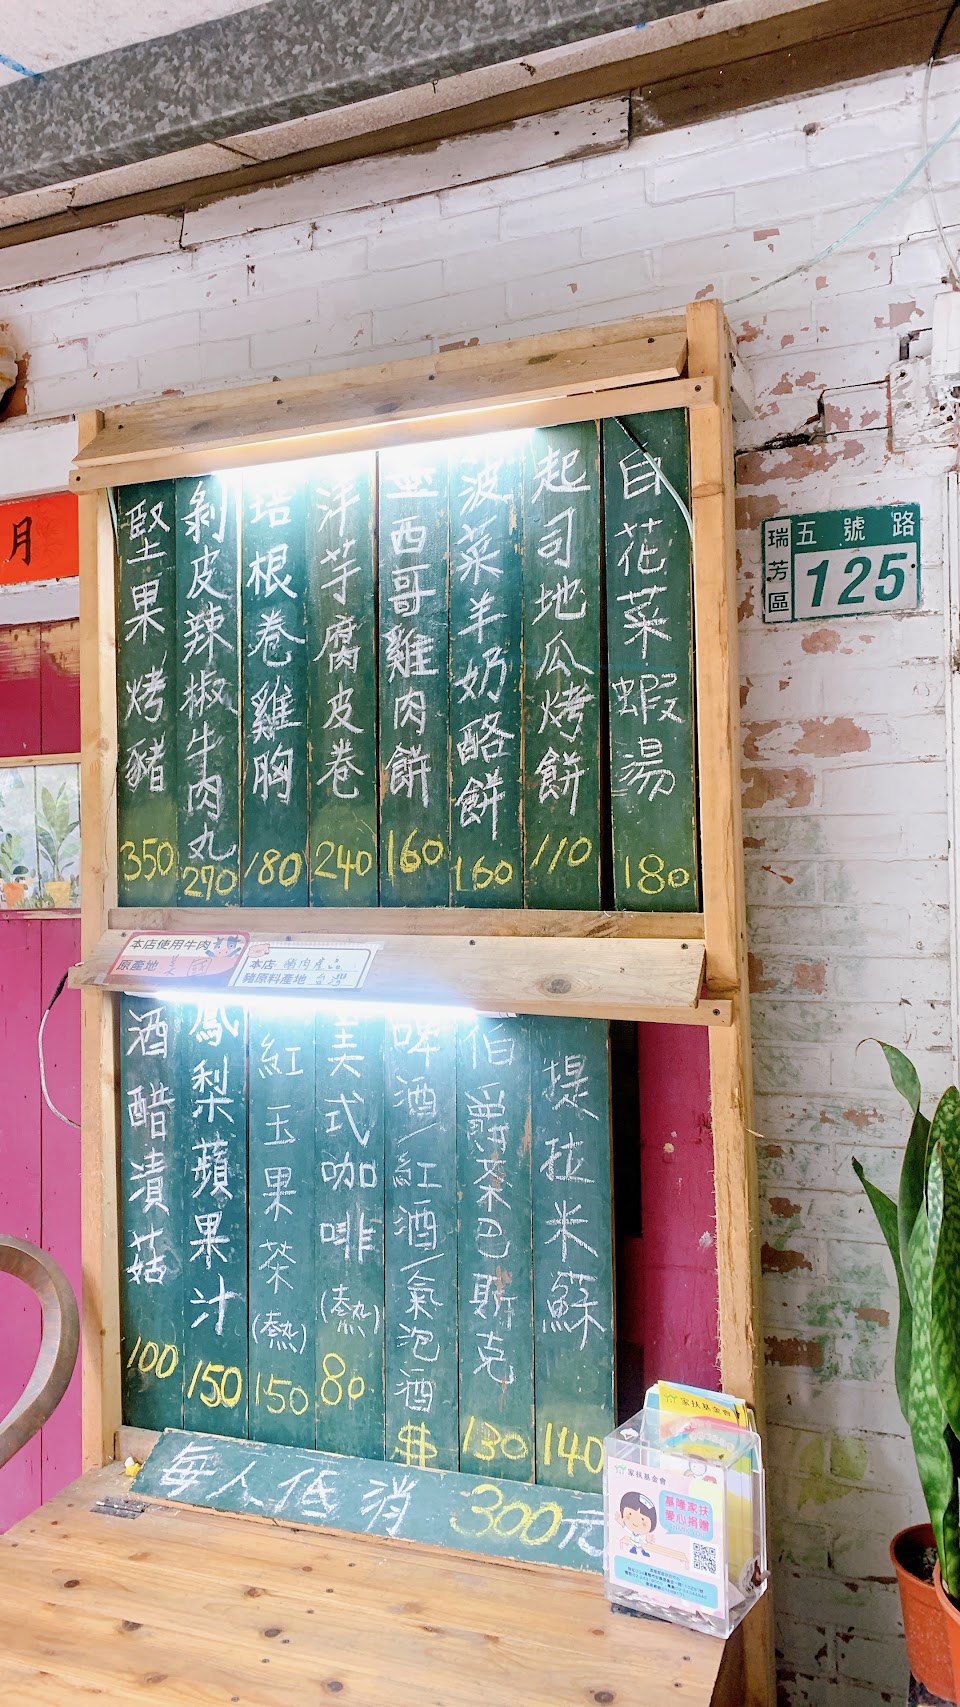 白花菜蝦湯 180
起司地瓜烤餅 110
菠菜羊奶酪餅 160
墨西哥雞肉餅 160
洋芋腐皮卷 240
培根卷雞胸 180
剝皮辣椒牛肉丸 270
堅果烤豬 350
本店使用牛肉
原產地 美國
本店 豬肉產品
豬原料產地 台灣
提拉米蘇 140
伯爵茶巴斯克 130
啤酒/紅酒/氣泡酒 $
美式咖啡(熱) 80
紅玉果茶(熱) 150
鳳梨蘋果汁 150
酒醋漬菇 100
每人低消 300元
瑞芳區
五號路
125
月
家扶基金會
家扶基金會
基隆家扶
愛心捐贈